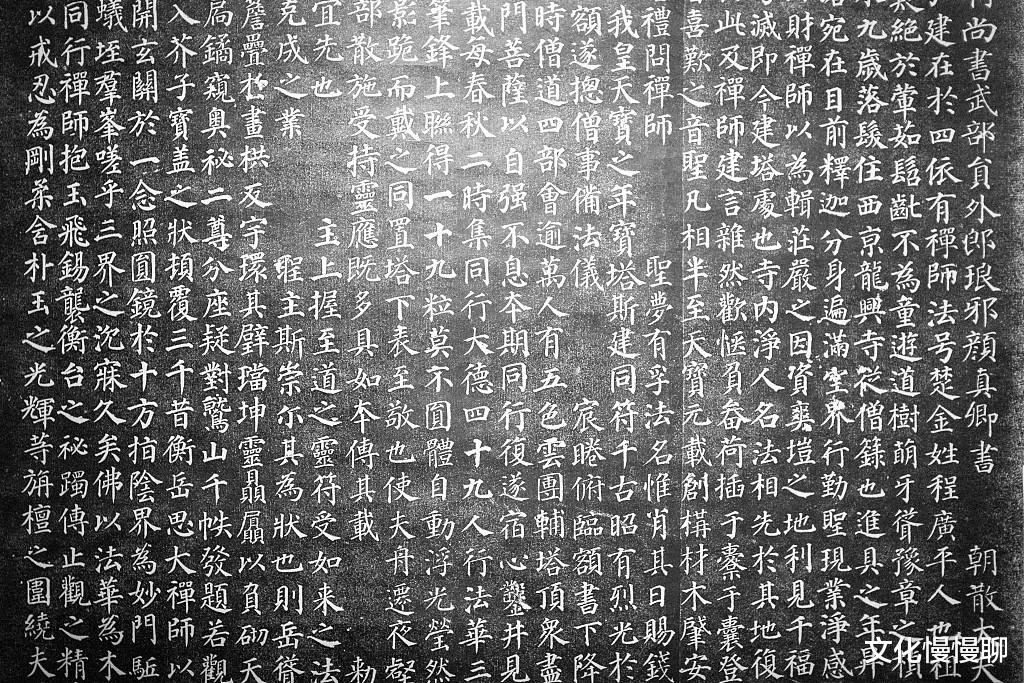 尚書武部貟外郎琅邪顏真卿書 朝散大夫
建在於四依有禪師法号楚金姓程廣平人也祖
絕於葷茹髫齔不為童遊道樹萌牙聳豫章之楨
九歲落髮住西京龍興寺從僧籙也進具之年昇
宛在目前釋迦分身遍滿空界行勤聖現業淨感
財禪師以為輯莊嚴之因資爽塏之地利見千福
滅即今建塔處也寺内淨人名法相先於其地復
此及禪師建言雜然歡愜負畚荷插于橐于囊登
喜歎之音聖凡相半至天寶元載創構材木肇安
禮問禪師 聖夢有孚法名惟肖其日賜錢
我皇天寶之年寶塔斯建同符千古昭有烈光於
額遂揔僧事備法儀 宸睠俯臨額書下降
時僧道四部會逾萬人有五色雲團輔塔頂衆盡
門菩薩以自强不息本期同行復遂宿心鑿井見
載每春秋二時集同行大德四十九人行法華三
筆鋒上聯得一十九粒莫不圓體自動浮光瑩然
影跪而戴之同置塔下表至敬也使夫舟遷夜壑
部散施受持靈應既多具如本傳其載 勑
宜先也 主上握至道之靈符受如来之法
克成之業 聖主斯崇尒其為狀也則岳聳
簷疊於畫栱反宇環其壁璫坤靈贔屭以負砌天
扃鐍窺奥秘二尊分座疑對鷲山千帙發題若觀
入芥子寶盖之狀頓覆三千昔衡岳思大禪師以
開玄關於一念照圓鏡於十方指陰界為妙門駈
蟻垤羣峯嗟乎三界之沉寐久矣佛以法華為木
同行禪師抱玉飛錫襲衡台之秘躅傳止觀之精
以戒忍為剛柔含朴玉之光輝等旃檀之圍繞夫
文化慢慢聊